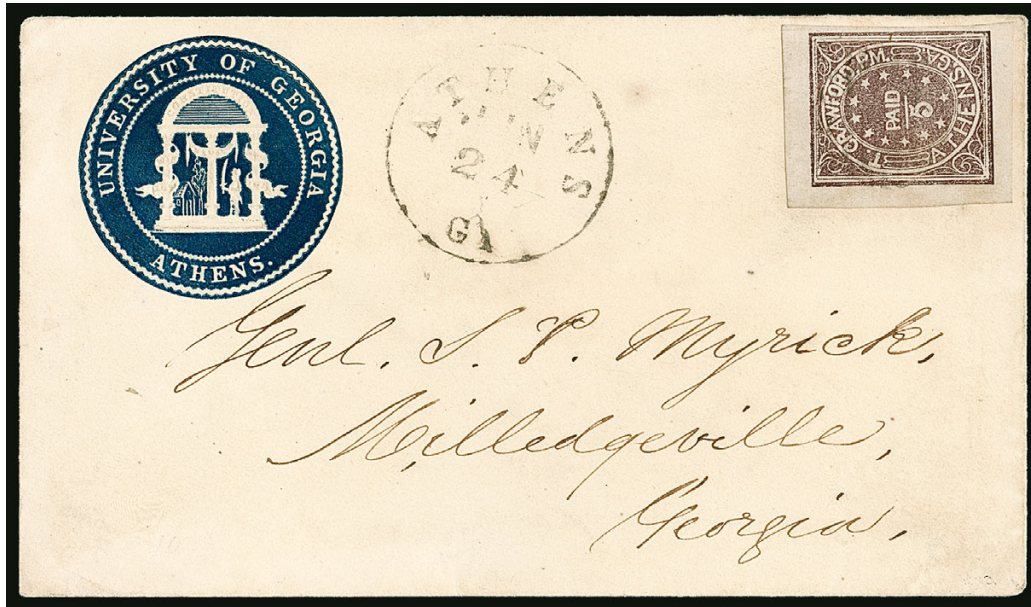 UNIVERSITY OF GEORGIA
ATHENS.
ATHENS
24
GA
T. CRAWFORD. P.M.
ATHENS. GA
PAID
5
Genl. S. P. Myrick,
Milledgeville,
Georgia,